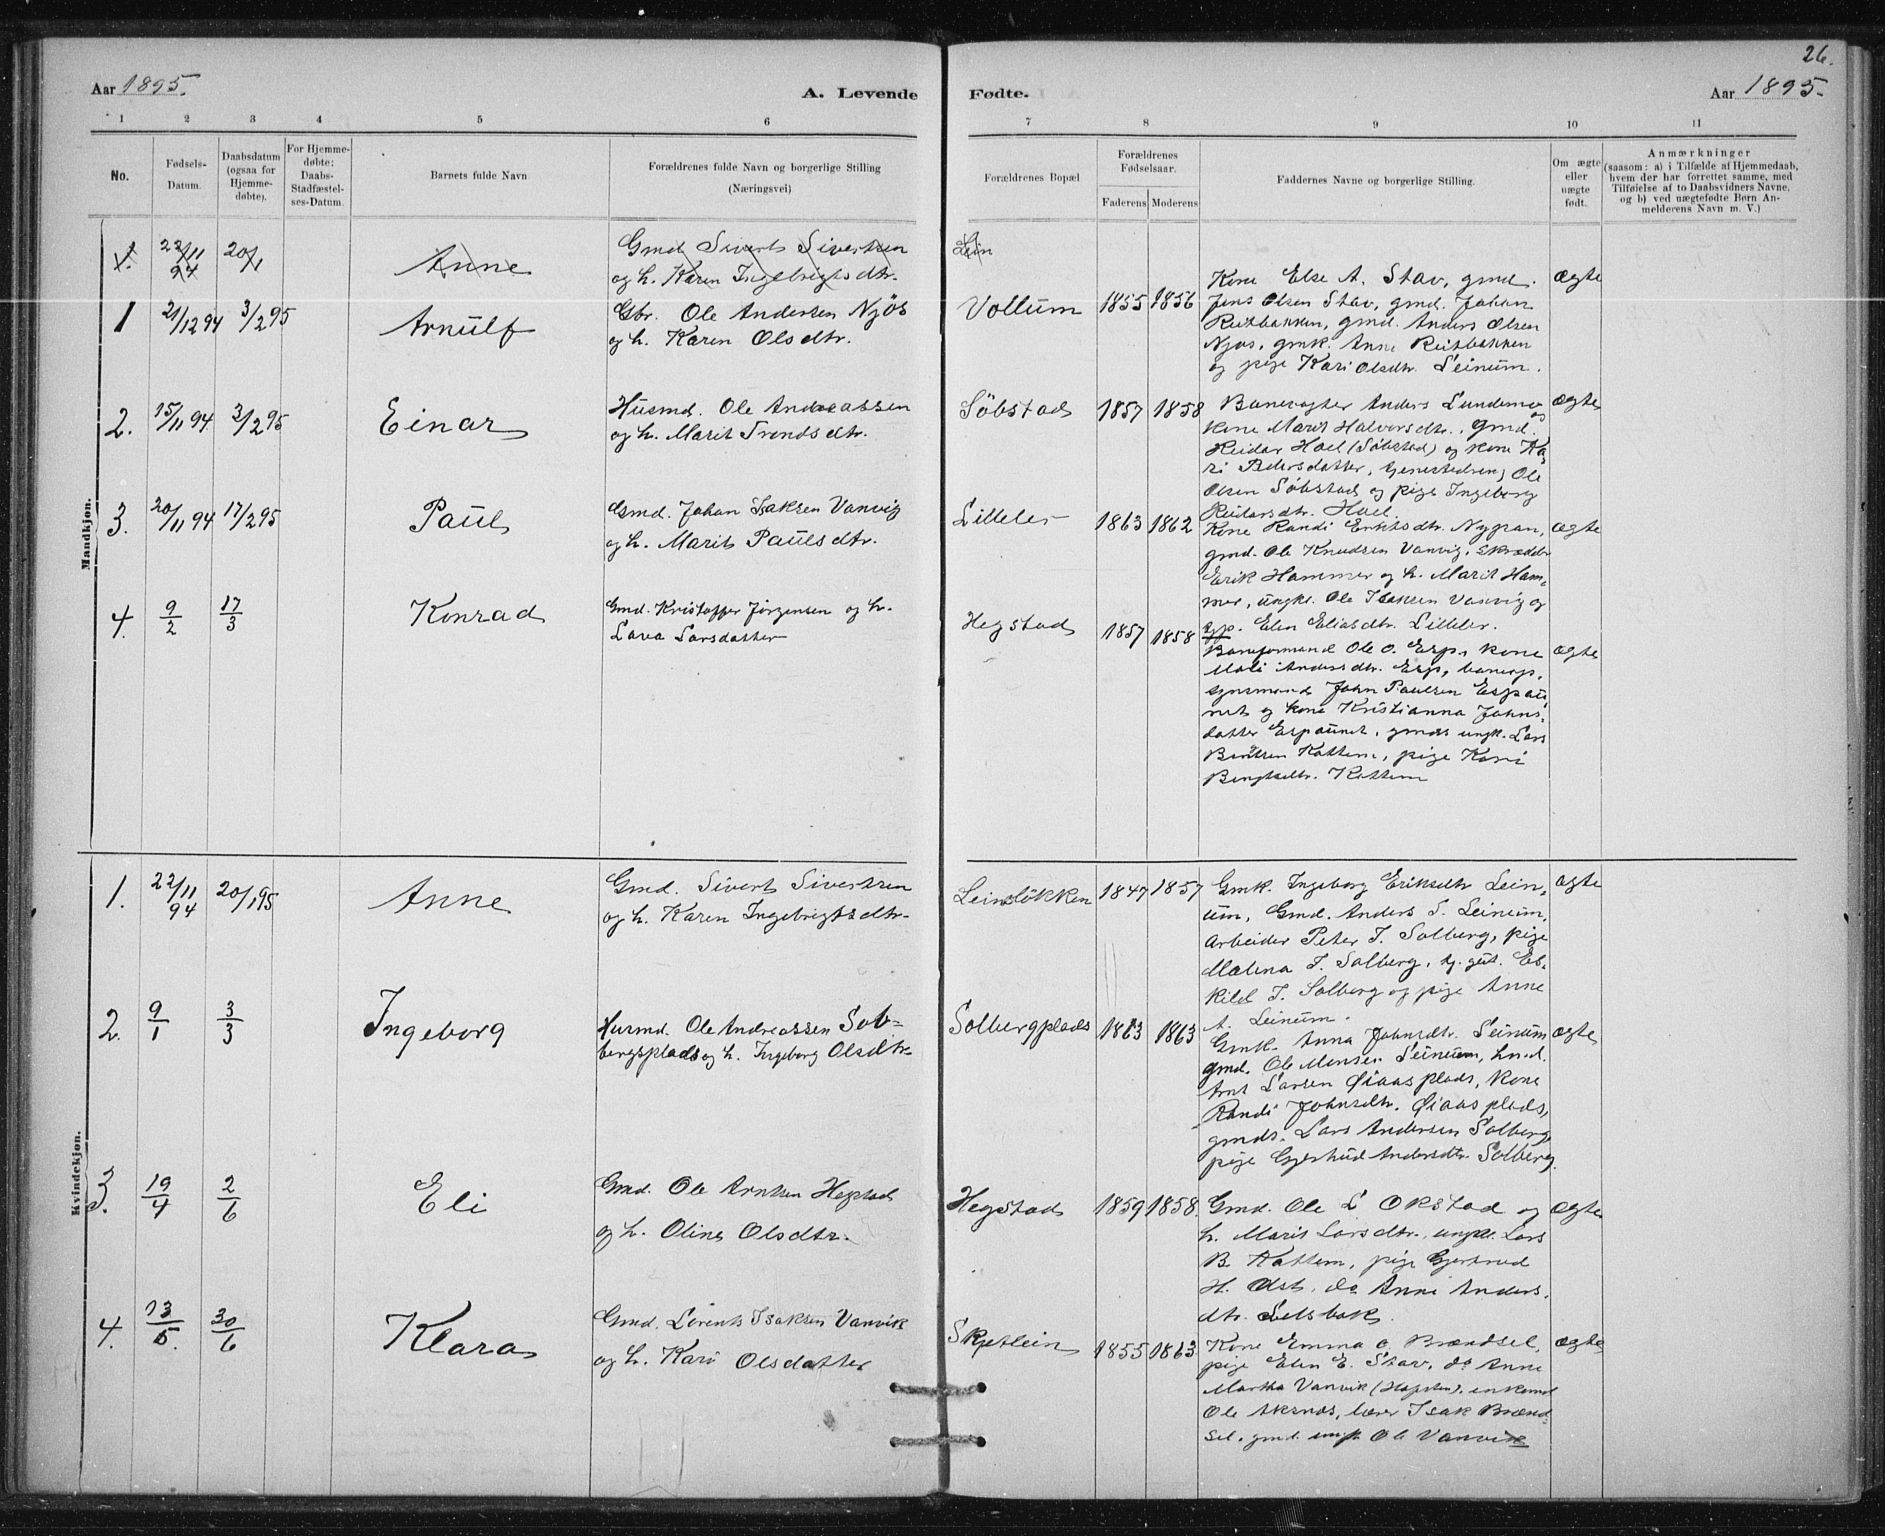 26.
Aar 1895.
A. Levende
Fødte.
Aar 1895.
1 2 3 4 5 6
7 8 9 10 11
No.
Fødsels-
Datum.
Daabsdatum
(ogsaa for
Hjemme-
døbte).
For Hjemme-
døbte:
Daabs-
Stadfæstel-
ses-Datum.
Barnets fulde Navn
Forældrenes fulde Navn og borgerlige Stilling
(Næringsvei)
Forældrenes Bopæl
Forældrenes
Fødselsaar.
Faderens Moderens
Faddernes Navne og borgerlige Stilling.
Om ægte
eller
uægte
født.
Anmærkninger
(saasom: a) i Tilfælde af Hjemmedaab,
hvem der har forrettet samme, med
Tilføielse af to Daabsvidners Navne,
og b) ved uægtefødte Børn An-
melderens Navn m. V.)
Mandkjøn.
1. 22/11 94 20/1 Anne
Gmd Sivert Sivertsen
og h. Karen Ingebrigtsdtr.
Lein
1 21/12 94 3/2 95 Arnulf
Gbr. Ole Andersen Njøs
og h. Karen Olsdtr.
Vollum 1855 1856
Kone Else A. Stav, gmd. ægte
Jens Olsen Stav, gmd. Johan
Reitbakken, gmd. Anders Olsen
Njøs, gmk. Anne Reitbakken
og pige Kari Olsdtr. Leinum.
2. 15/11 94 3/2 95 Einar
Husmd. Ole Andreassen
og h. Marit Svendsdtr.
Søbstad 1857 1858
Banevogter Anders Lundemo ægte
og
kone Marit Halvorsdtr., gmd.
Reidar Hoel (Søbstad) og kone Ka-
ri Pedersdatter, Ole
Olsen Søbstad og pige Ingeborg
Reidarsdtr. Hoel.
3. 20/11 94 17/2 95 Paul
Gmd. Johan Isaksen Vanvig
og h. Marit Paulsdtr.
Lilleler 1863 1862
Kone Randi Eriksdtr. Nypan, ægte
gmd. Ole Knudsen Vanvig, skrædder
Erik Hammer og h. Marit Ham-
mer, ungk. Ole Isaksen Vanvig og
Elen Eliasdtr. Lilleler.
4. 9/2 17/3 Konrad
Gmd. Kristoffer Jørgensen og h.
Lava Larsdatter
Hegstad 1857 1858
Baneformand Ole O. Esp, kone ægte
Mali Andersdtr. Esp, baneop-
synsmand John Paulsen Espau-
net og kone Kristianna Johns-
datter Espaunet, gmds ungk. Lars
Bentsen Kattem, pige Kari
Bengtsdtr. Kattem
Kvindekjøn.
1. 22/11 94 20/1 95 Anne
Gmd. Sivert Sivertsen
og h. Karen Ingebrigtsdtr.
Leinsløkken 1847 1857
Gmk. Ingeborg Eriksdtr Lein- ægte
um, Gmd. Anders S. Leinum,
Arbeider Peter J. Solberg, pige
Malena J. Solberg, tj. gut. Es-
kild J. Solberg og pige Anne
A. Leinum.
2. 9/1 3/3 Ingeborg
Husmd. Ole Andreassen Sol-
bergsplads og h. Ingeborg Olsdtr.
Solbergplads 1863 1863
Gmk. Anna Johnsdtr. Leinum ægte
gmd. Ole Monsen Leinum, hmd.
Arnt Larsen Øiaasplads, kone
Randi Johnsdtr. Øiaasplads,
gmds. Lars Andersen Solberg
pige Gjertrud Andersdtr. Solberg.
3. 19/4 2/6 Eli
Gmd. Ole Arntsen Hegstad
og h. Oline Olsdtr.
Hegstad 1859 1858.
Gmd. Ole L Okstad og ægte
h. Marit Larsdtr., ungk. Lars
B. Kattem, pige Gjertrud
H. Øst, do Anne Anders-
dtr. Selsbak.
4. 13/5. 30/6 Klara
Gmd. Lorents Isaksen Vanvik
og h. Kari Olsdatter
Skjetlein 1855 1863.
Kone Emma O Brændsel, ægte
pige Elen E. Stav, do Anne
Martha Vanvik (Hopsten), enkemd
Ole Aksnes, lærer Isak Brænd-
sel, gmd. ungk Ole Vanvik